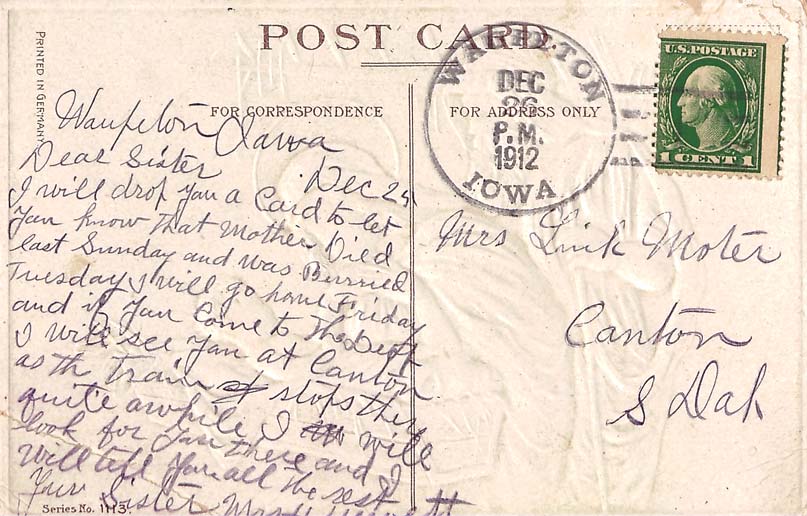 POST CARD
PRINTED IN GERMANY
FOR CORRESPONDENCE
FOR ADDRESS ONLY
WAUPETON
DEC
26
P.M.
1912
IOWA
U.S. POSTAGE
1 CENT 1
Waupeton Iawa
Dec 24
Dear Sister
I will drop you a Card to let
you know that Mother Died
last Sunday and was Burried
Tuesday I will go home Friday
and if you Come to the Dept
I will see you at Canton
as the Train stops ther
quite awhile I will
look for you there and I
will tell you all the rest
your Sister Mrs
Series No. 1113.
Mrs Link Moter
Canton
S Dak